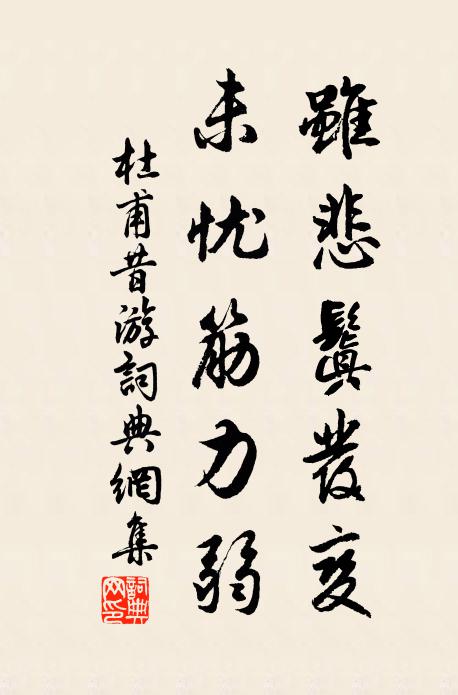 雖悲鬒發变
未忧筋力弱
杜甫昔游詞典網集
詞典网印